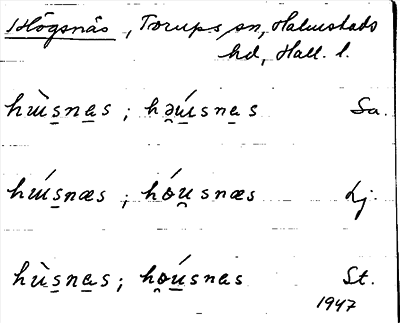 Högsnäs, Torups sn, Halmstads
hd, Hall. l.
hɯ̀s̲na̲s ; hə̯ɯ́s̲na̲s Sa.
hɯ́s̲næs ; hóu̯snæs Lj.
hùs̲na̲s ; ho̯ú̲snas St.
1947